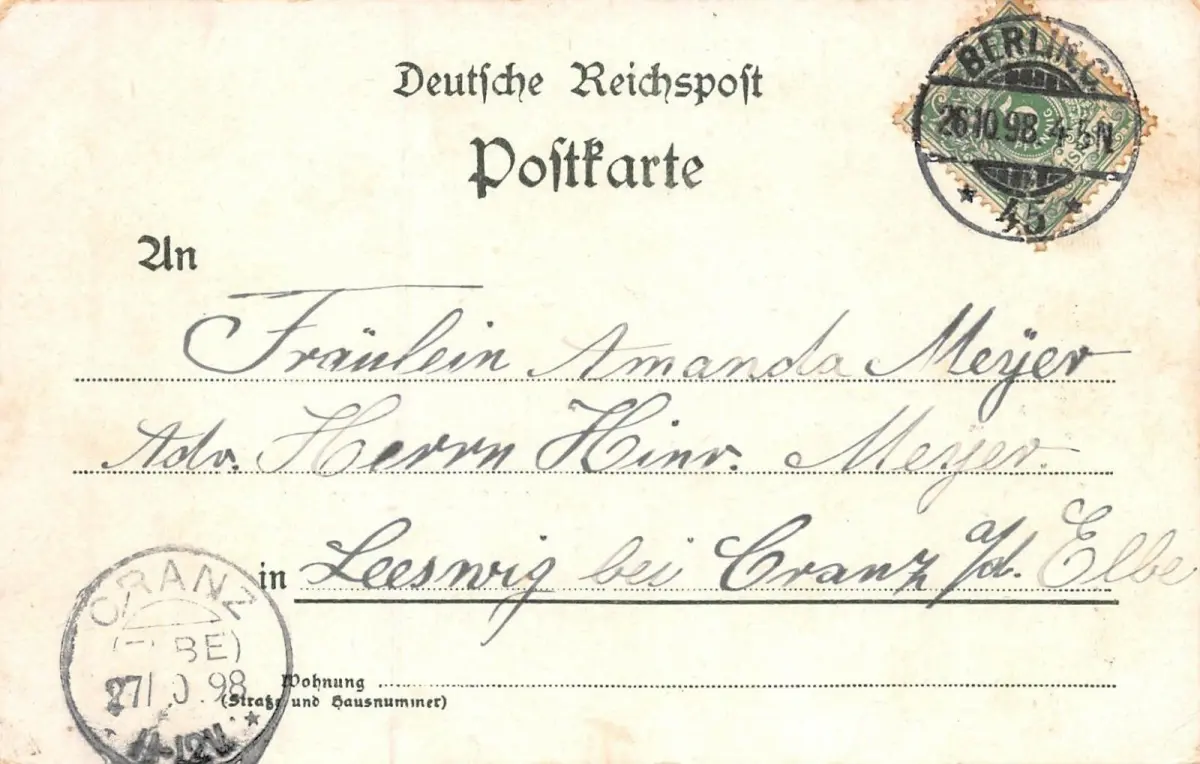 Deutsche Reichspost
Postkarte
BERLIN C
26.10.98. 4-5N
* 45 *
5
An
Fräulein Amanda Meyer
Adr. Herrn Hinr. Meyer.
in Leeswig bei Cranz a/d. Elbe
CRANZ
(ELBE)
27/10 98
11-12V.
Wohnung
(Straße und Hausnummer)